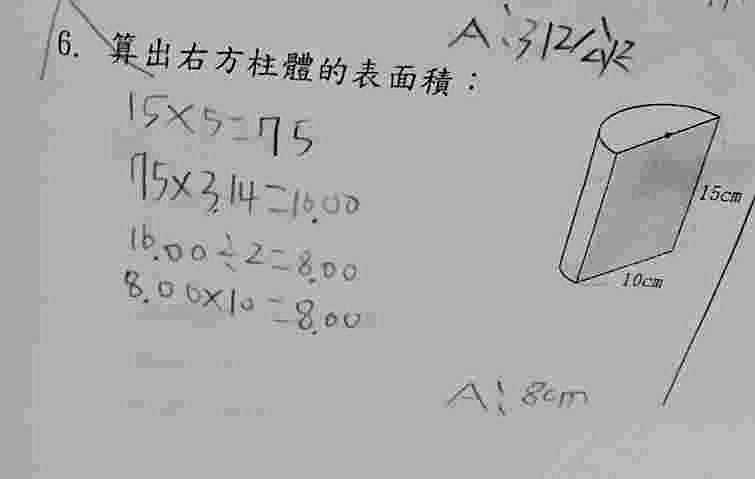 A:312公尺
6. 算出右方柱體的表面積：
15×5=75
75×3.14=16.00
16.00÷2=8.00
8.00×10=8.00
15cm
10cm
A:8cm